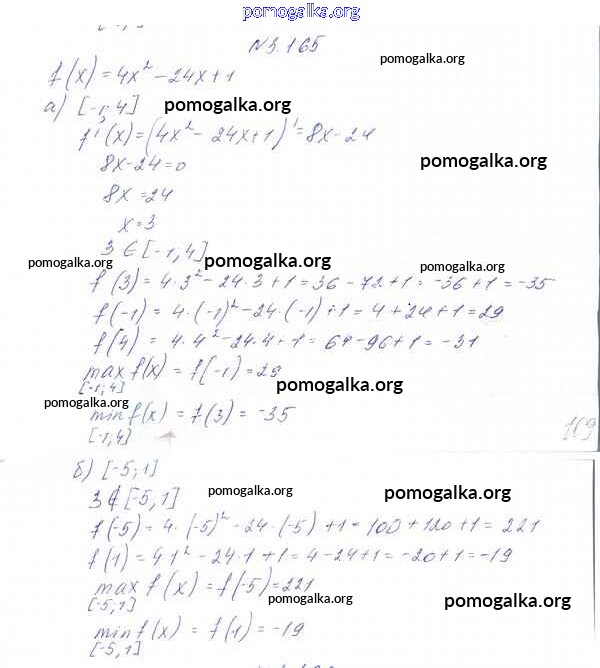 pomogalka.org
N3.165
pomogalka.org
f(x) = 4x² - 24x + 1
а) [-1; 4] pomogalka.org
f'(x) = (4x² - 24x + 1)' = 8x - 24
8x - 24 = 0
pomogalka.org
8x = 24
x = 3
3 ∈ [-1; 4]
pomogalka.org pomogalka.org pomogalka.org
f(3) = 4·3² - 24·3 + 1 = 36 - 72 + 1 = -36 + 1 = -35
f(-1) = 4·(-1)² - 24·(-1) + 1 = 4 + 24 + 1 = 29
f(4) = 4·4² - 24·4 + 1 = 64 - 96 + 1 = -31
max f(x) = f(-1) = 29
[-1; 4]
pomogalka.org
pomogalka.org
min f(x) = f(3) = -35
[-1; 4]
169
б) [-5; 1]
3 ∉ [-5, 1] pomogalka.org pomogalka.org
f(-5) = 4·(-5)² - 24·(-5) + 1 = 100 + 120 + 1 = 221
f(1) = 4·1² - 24·1 + 1 = 4 - 24 + 1 = -20 + 1 = -19
max f(x) = f(-5) = 221
[-5; 1]
pomogalka.org pomogalka.org
min f(x) = f(1) = -19
[-5, 1]